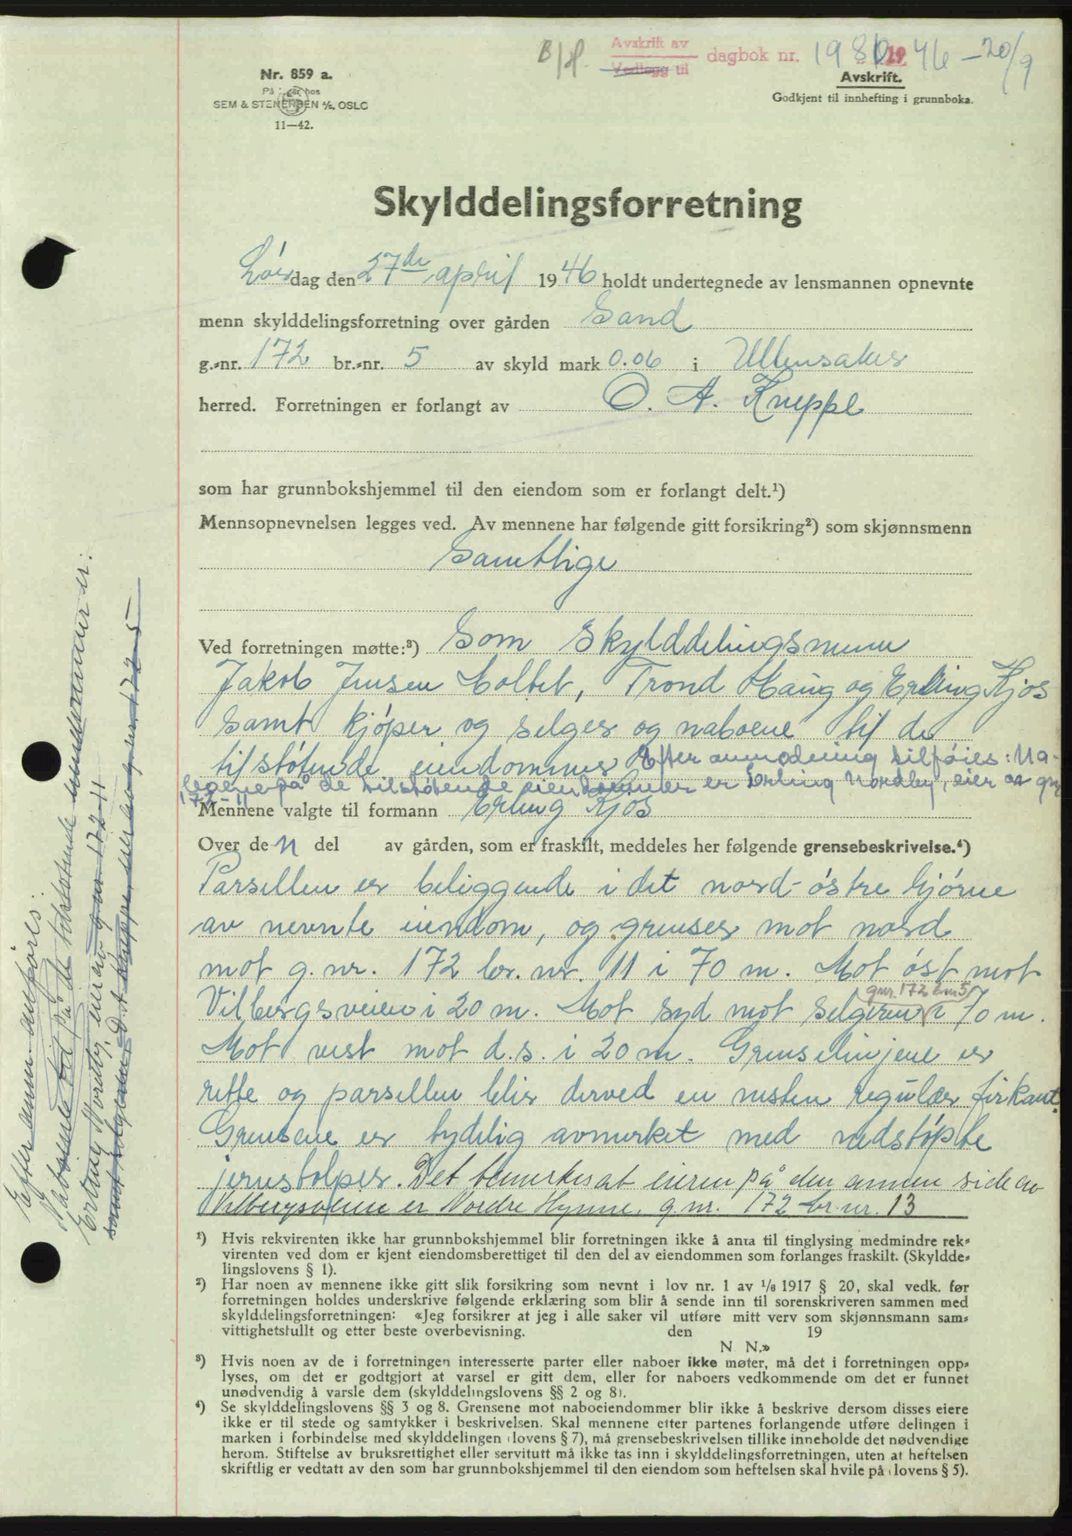 B/H. Avskrift av dagbok nr. 1980 1946 - 20/9
Vedlegg til
Nr. 859 a.
På lager hos
SEM & STENERSEN A/S, OSLO
11—42.
Avskrift.
Godkjent til innhefting i grunnboka.
Skylddelingsforretning
Lørdag den 27de april 1946 holdt undertegnede av lensmannen opnevnte
menn skylddelingsforretning over gården Sand
g.-nr. 172 br.-nr. 5 av skyld mark 0.06 i Ullensaker
herred. Forretningen er forlangt av O. A. Kneppe
som har grunnbokshjemmel til den eiendom som er forlangt delt.¹)
Mennsopnevnelsen legges ved. Av mennene har følgende gitt forsikring²) som skjønnsmenn
Samtlige
Ved forretningen møtte:³) Som skylddelingsmenn
Jakob Jensen Holtet, Trond Haug og Erling Kjos
samt kjøper og selger og naboene til de
tilstøtende eiendommer Efter anmodning tilføies: Na-
boene på de tilstøtende eiendommer er Erling Nordby, eier av gnr
172-11
Mennene valgte til formann Erling Kjos
Over den del av gården, som er fraskilt, meddeles her følgende grensebeskrivelse.⁴)
Parsellen er beliggende i det nord-østre hjørne
av nevnte eiendom, og grenser mot nord
mot g. nr. 172 br. nr. 11 i 70 m. Mot øst mot
gnr. 172 bnr 5
Vilbergsveien i 20 m. Mot syd mot selgeren i 70 m.
Mot vest mot d.s. i 20 m. Grenselinjene er
rette og parsellen blir derved en nesten regulær firkant.
Grensene er tydelig avmerket med nedstøpte
jernstolper. Det bemerkes at eieren på den annen side av
Vilbergsveien er Nordre Hynne, g. nr. 172 br. nr. 13
¹) Hvis rekvirenten ikke har grunnbokshjemmel blir forretningen ikke å anta til tinglysing medmindre rek-
virenten ved dom er kjent eiendomsberettiget til den del av eiendommen som forlanges fraskilt. (Skyldde-
lingslovens § 1).
²) Har noen av mennene ikke gitt slik forsikring som nevnt i lov nr. 1 av 1/6 1917 § 20, skal vedk. før
forretningen holdes underskrive følgende erklæring som blir å sende inn til sorenskriveren sammen med
skylddelingsforretningen: «Jeg forsikrer at jeg i alle saker vil utføre mitt verv som skjønnsmann sam-
vittighetsfullt og etter beste overbevisning. den 19
N N.»
³) Hvis noen av de i forretningen interesserte parter eller naboer ikke møter, må det i forretningen opp-
lyses, om det er godtgjort at varsel er gitt dem, eller for naboers vedkommende om det er funnet
unødvendig å varsle dem (skylddelingslovens §§ 2 og 8).
⁴) Se skylddelingslovens §§ 3 og 8. Grensene mot naboeiendommer blir ikke å beskrive dersom disses eiere
ikke er til stede og samtykker i beskrivelsen. Skal mennene etter partenes forlangende utføre delingen i
marken i forbindelse med skylddelingen (lovens § 7), må grensebeskrivelsen tillike inneholde det nødvendige
herom. Stiftelse av bruksrettighet eller servitutt må ikke tas inn i skylddelingsforretningen, uten at heftelsen
skriftlig er vedtatt av den som har grunnbokshjemmel til den eiendom som heftelsen skal hvile på (lovens § 5).
Efter anm. anføres:
Naboene på de tilstøtende eiendommer er:
Erling Nordby, eier av gnr 172-11
samt selgeren O. A. Kneppe 172-5